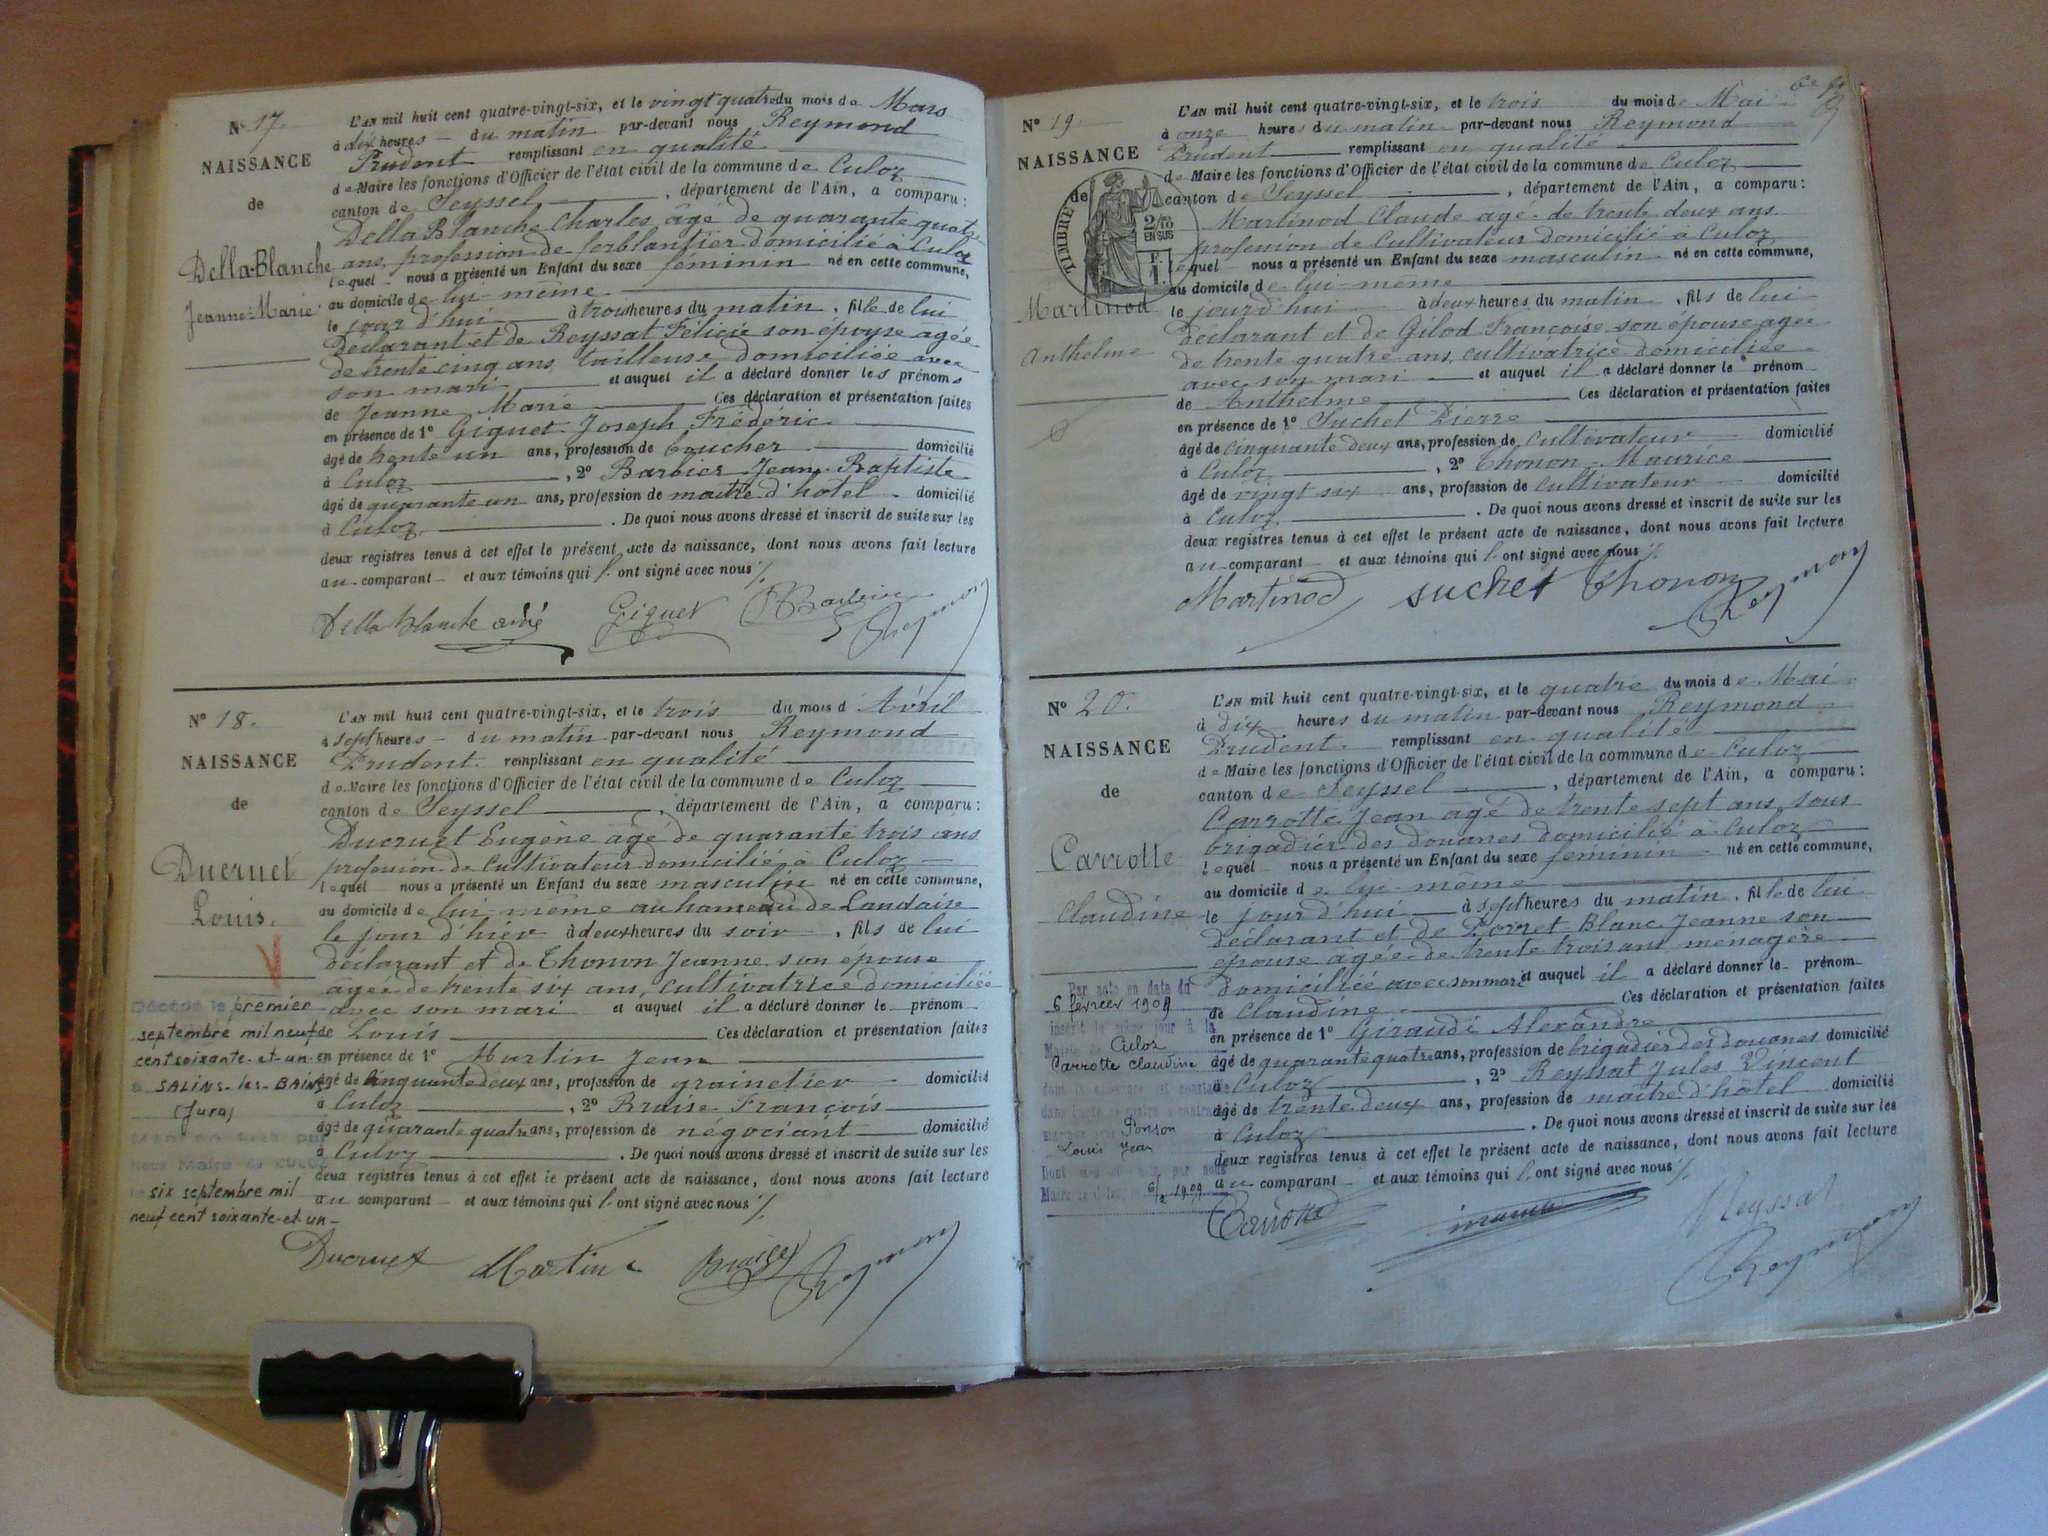 N° 17.
NAISSANCE
de
Della-Blanche
Jeanne-Marie
L'AN mil huit cent quatre-vingt-six, et le vingt quatre du mois de Mars
à dix heures du matin par-devant nous Reymond
Prudent remplissant en qualité
de Maire les fonctions d'Officier de l'état civil de la commune de Culoz
canton de Seyssel, département de l'Ain, a comparu:
Della Blanche Charles, âgé de quarante quatre
ans, profession de ferblantier domicilié à Culoz
lequel nous a présenté un Enfant du sexe féminin né en cette commune,
au domicile de lui-même
le jour d'hui à trois heures du matin, fille de lui
Déclarant et de Reyssat Félicie son épouse agée
de trente cinq ans, tailleuse domiciliée avec
son mari et auquel il a déclaré donner les prénoms
de Jeanne Marie Ces déclaration et présentation faites
en présence de 1° Giguet Joseph Frédéric
âgé de trente un ans, profession de boucher domicilié
à Culoz, 2° Barbier Jean-Baptiste
âgé de quarante un ans, profession de maître d'hôtel domicilié
à Culoz. De quoi nous avons dressé et inscrit de suite sur les
deux registres tenus à cet effet le présent acte de naissance, dont nous avons fait lecture
au comparant et aux témoins qui l'ont signé avec nous
Della blanche Giguet Barbier
Reymond
N° 18.
NAISSANCE
de
Ducruet
Louis.
Décédé le premier
septembre mil neuf
cent soixante-et-un
à SALINS-les-BAINS
(Jura)
Mention faite par
nous Maire de CULOZ
six septembre mil
neuf cent soixante-et-un
L'AN mil huit cent quatre-vingt-six, et le trois du mois d'Avril
à sept heures du matin par-devant nous Reymond
Prudent remplissant en qualité
de Maire les fonctions d'Officier de l'état civil de la commune de Culoz
canton de Seyssel, département de l'Ain, a comparu:
Ducruet Eugène agé de quarante trois ans
profession de Cultivateur domicilié à Culoz
lequel nous a présenté un Enfant du sexe masculin né en cette commune,
au domicile de lui-même au hameau de Landaise
le jour d'hier à deux heures du soir, fils de lui
déclarant et de Thonon Jeanne son épouse
agée de trente six ans, cultivatrice domiciliée
avec son mari et auquel il a déclaré donner le prénom
de Louis Ces déclaration et présentation faites
en présence de 1° Martin Jean
âgé de cinquante deux ans, profession de grainetier domicilié
à Culoz, 2° Braise François
âgé de quarante quatre ans, profession de négociant domicilié
à Culoz. De quoi nous avons dressé et inscrit de suite sur les
deux registres tenus à cet effet le présent acte de naissance, dont nous avons fait lecture
au comparant et aux témoins qui l'ont signé avec nous
Ducruet Martin Braise Reymond
N° 19.
NAISSANCE
de
TIMBRE
2/10
EN SUS
Martinod
Anthelme
L'AN mil huit cent quatre-vingt-six, et le trois du mois de Mai
à onze heures du matin par-devant nous Reymond
Prudent remplissant en qualité
de Maire les fonctions d'Officier de l'état civil de la commune de Culoz
canton de Seyssel, département de l'Ain, a comparu:
Martinod Claude agé de trente deux ans
profession de Cultivateur domicilié à Culoz
lequel nous a présenté un Enfant du sexe masculin né en cette commune,
au domicile de lui-même
le jour d'hui à deux heures du matin, fils de lui
déclarant et de Gilod Françoise son épouse agée
de trente quatre ans, cultivatrice domiciliée
avec son mari et auquel il a déclaré donner le prénom
de Anthelme Ces déclaration et présentation faites
en présence de 1° Suchet Pierre
âgé de cinquante deux ans, profession de cultivateur domicilié
à Culoz, 2° Thonon Maurice
âgé de vingt six ans, profession de cultivateur domicilié
à Culoz. De quoi nous avons dressé et inscrit de suite sur les
deux registres tenus à cet effet le présent acte de naissance, dont nous avons fait lecture
au comparant et aux témoins qui l'ont signé avec nous
Martinod suchet Thonon
Reymond
N° 20.
NAISSANCE
de
Carrotte
Claudine
Par acte en date du
6 février 1909
inscrit le même jour à la
Mairie de Culoz
Carrotte Claudine
Ponson
Louis Jean
6/2 1909
L'AN mil huit cent quatre-vingt-six, et le quatre du mois de Mai
à dix heures du matin par-devant nous Reymond
Prudent remplissant en qualité
de Maire les fonctions d'Officier de l'état civil de la commune de Culoz
canton de Seyssel, département de l'Ain, a comparu:
Carrotte Jean agé de trente sept ans, sous
brigadier des douanes domicilié à Culoz
lequel nous a présenté un Enfant du sexe féminin né en cette commune,
au domicile de lui-même
le jour d'hui à sept heures du matin, fille de lui
déclarant et de Poiret-Blanc Jeanne son
épouse agée de trente trois ans ménagère
domiciliée avec son mari et auquel il a déclaré donner le prénom
de Claudine Ces déclaration et présentation faites
en présence de 1° Giraudi Alexandre
âgé de quarante quatre ans, profession de brigadier des douanes domicilié
à Culoz, 2° Reyssat Jules Vincent
âgé de trente deux ans, profession de maître d'hôtel domicilié
à Culoz. De quoi nous avons dressé et inscrit de suite sur les
deux registres tenus à cet effet le présent acte de naissance, dont nous avons fait lecture
au comparant et aux témoins qui l'ont signé avec nous
Carrotte Reyssat
Reymond